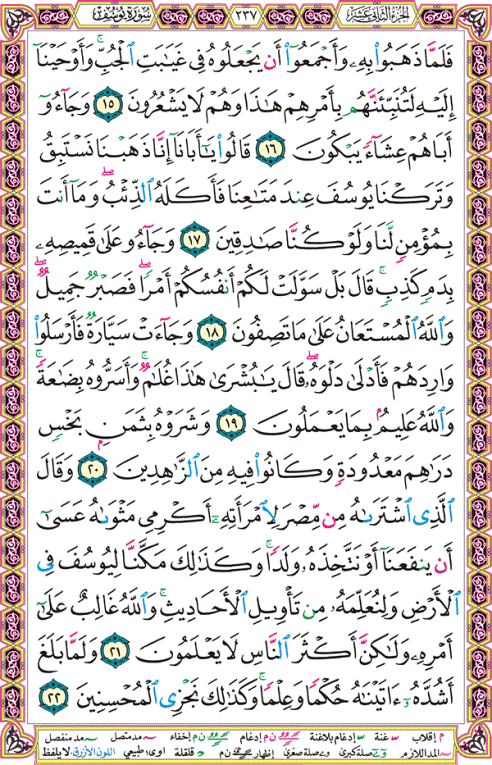 الجزء الثاني عشر ٢٣٧ سورة يوسف
فَلَمَّا ذَهَبُوا۟ بِهِۦ وَأَجْمَعُوٓا۟ أَن يَجْعَلُوهُ فِى غَيَـٰبَتِ ٱلْجُبِّ ۚ وَأَوْحَيْنَآ
إِلَيْهِ لَتُنَبِّئَنَّهُم بِأَمْرِهِمْ هَـٰذَا وَهُمْ لَا يَشْعُرُونَ ١٥ وَجَآءُوٓ
أَبَاهُمْ عِشَآءً يَبْكُونَ ١٦ قَالُوا۟ يَـٰٓأَبَانَآ إِنَّا ذَهَبْنَا نَسْتَبِقُ
وَتَرَكْنَا يُوسُفَ عِندَ مَتَـٰعِنَا فَأَكَلَهُ ٱلذِّئْبُ ۖ وَمَآ أَنتَ
بِمُؤْمِنٍ لَّنَا وَلَوْ كُنَّا صَـٰدِقِينَ ١٧ وَجَآءُو عَلَىٰ قَمِيصِهِۦ
بِدَمٍ كَذِبٍ ۚ قَالَ بَلْ سَوَّلَتْ لَكُمْ أَنفُسُكُمْ أَمْرًا ۖ فَصَبْرٌ جَمِيلٌ ۖ
وَٱللَّهُ ٱلْمُسْتَعَانُ عَلَىٰ مَا تَصِفُونَ ١٨ وَجَآءَتْ سَيَّارَةٌ فَأَرْسَلُوا۟
وَارِدَهُمْ فَأَدْلَىٰ دَلْوَهُۥ ۖ قَالَ يَـٰبُشْرَىٰ هَـٰذَا غُلَـٰمٌ ۚ وَأَسَرُّوهُ بِضَـٰعَةً ۚ
وَٱللَّهُ عَلِيمٌۢ بِمَا يَعْمَلُونَ ١٩ وَشَرَوْهُ بِثَمَنٍۭ بَخْسٍ
دَرَٰهِمَ مَعْدُودَةٍ وَكَانُوا۟ فِيهِ مِنَ ٱلزَّٰهِدِينَ ٢٠ وَقَالَ
ٱلَّذِى ٱشْتَرَىٰهُ مِن مِّصْرَ لِٱمْرَأَتِهِۦٓ أَكْرِمِى مَثْوَىٰهُ عَسَىٰٓ
أَن يَنفَعَنَآ أَوْ نَتَّخِذَهُۥ وَلَدًا ۚ وَكَذَٰلِكَ مَكَّنَّا لِيُوسُفَ فِى
ٱلْأَرْضِ وَلِنُعَلِّمَهُۥ مِن تَأْوِيلِ ٱلْأَحَادِيثِ ۚ وَٱللَّهُ غَالِبٌ عَلَىٰٓ
أَمْرِهِۦ وَلَـٰكِنَّ أَكْثَرَ ٱلنَّاسِ لَا يَعْلَمُونَ ٢١ وَلَمَّا بَلَغَ
أَشُدَّهُۥٓ ءَاتَيْنَـٰهُ حُكْمًا وَعِلْمًا ۚ وَكَذَٰلِكَ نَجْزِى ٱلْمُحْسِنِينَ ٢٢
م إقلاب غنة إدغام بلاغنة ن م إدغام ن م إخفاء مد متصل مد منفصل
المد اللازم صلة كبرى صلة صغرى إظهار ن م قلقلة اوى: طبيعي اللون الأزرق: لا يلفظ